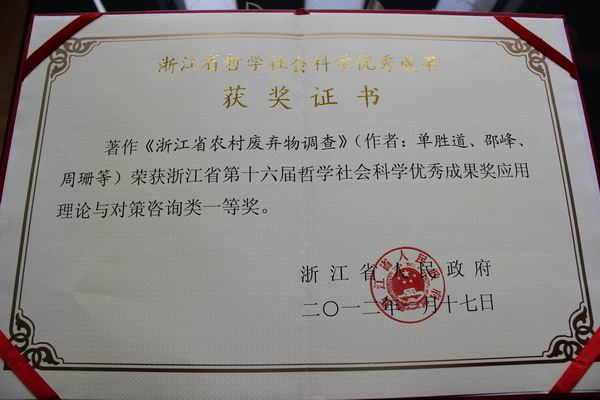 浙江省哲学社会科学优秀成果
获奖证书
著作《浙江省农村废弃物调查》（作者：单胜道、邵峰、
周珊等）荣获浙江省第十六届哲学社会科学优秀成果奖应用
理论与对策咨询类一等奖。
浙江省人民政府
二〇一二年 月十七日
浙江省人民政府